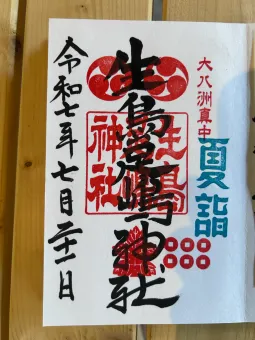 大八洲真中
夏詣
生島足島神社
生島
神社
令和七年七月二十一日